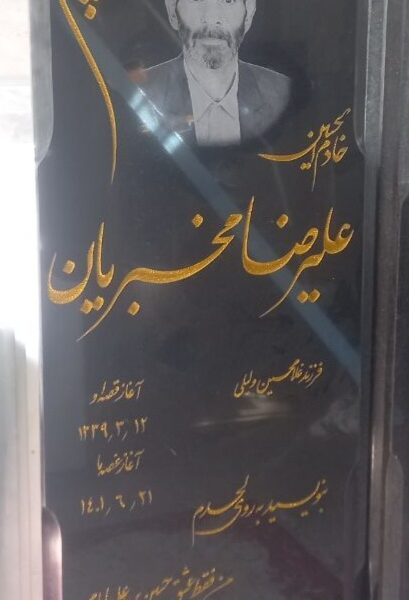 خادم الحسین
علیرضا مخبریان
فرزند غلامحسین و لیلی
آغاز قصه او
۱۳۳۹٫۳٫۱۲
آغاز غصه ما
۱۴۰۱٫۶٫۲۱
بنویسید به روی لحدم
فقط عشق حسین